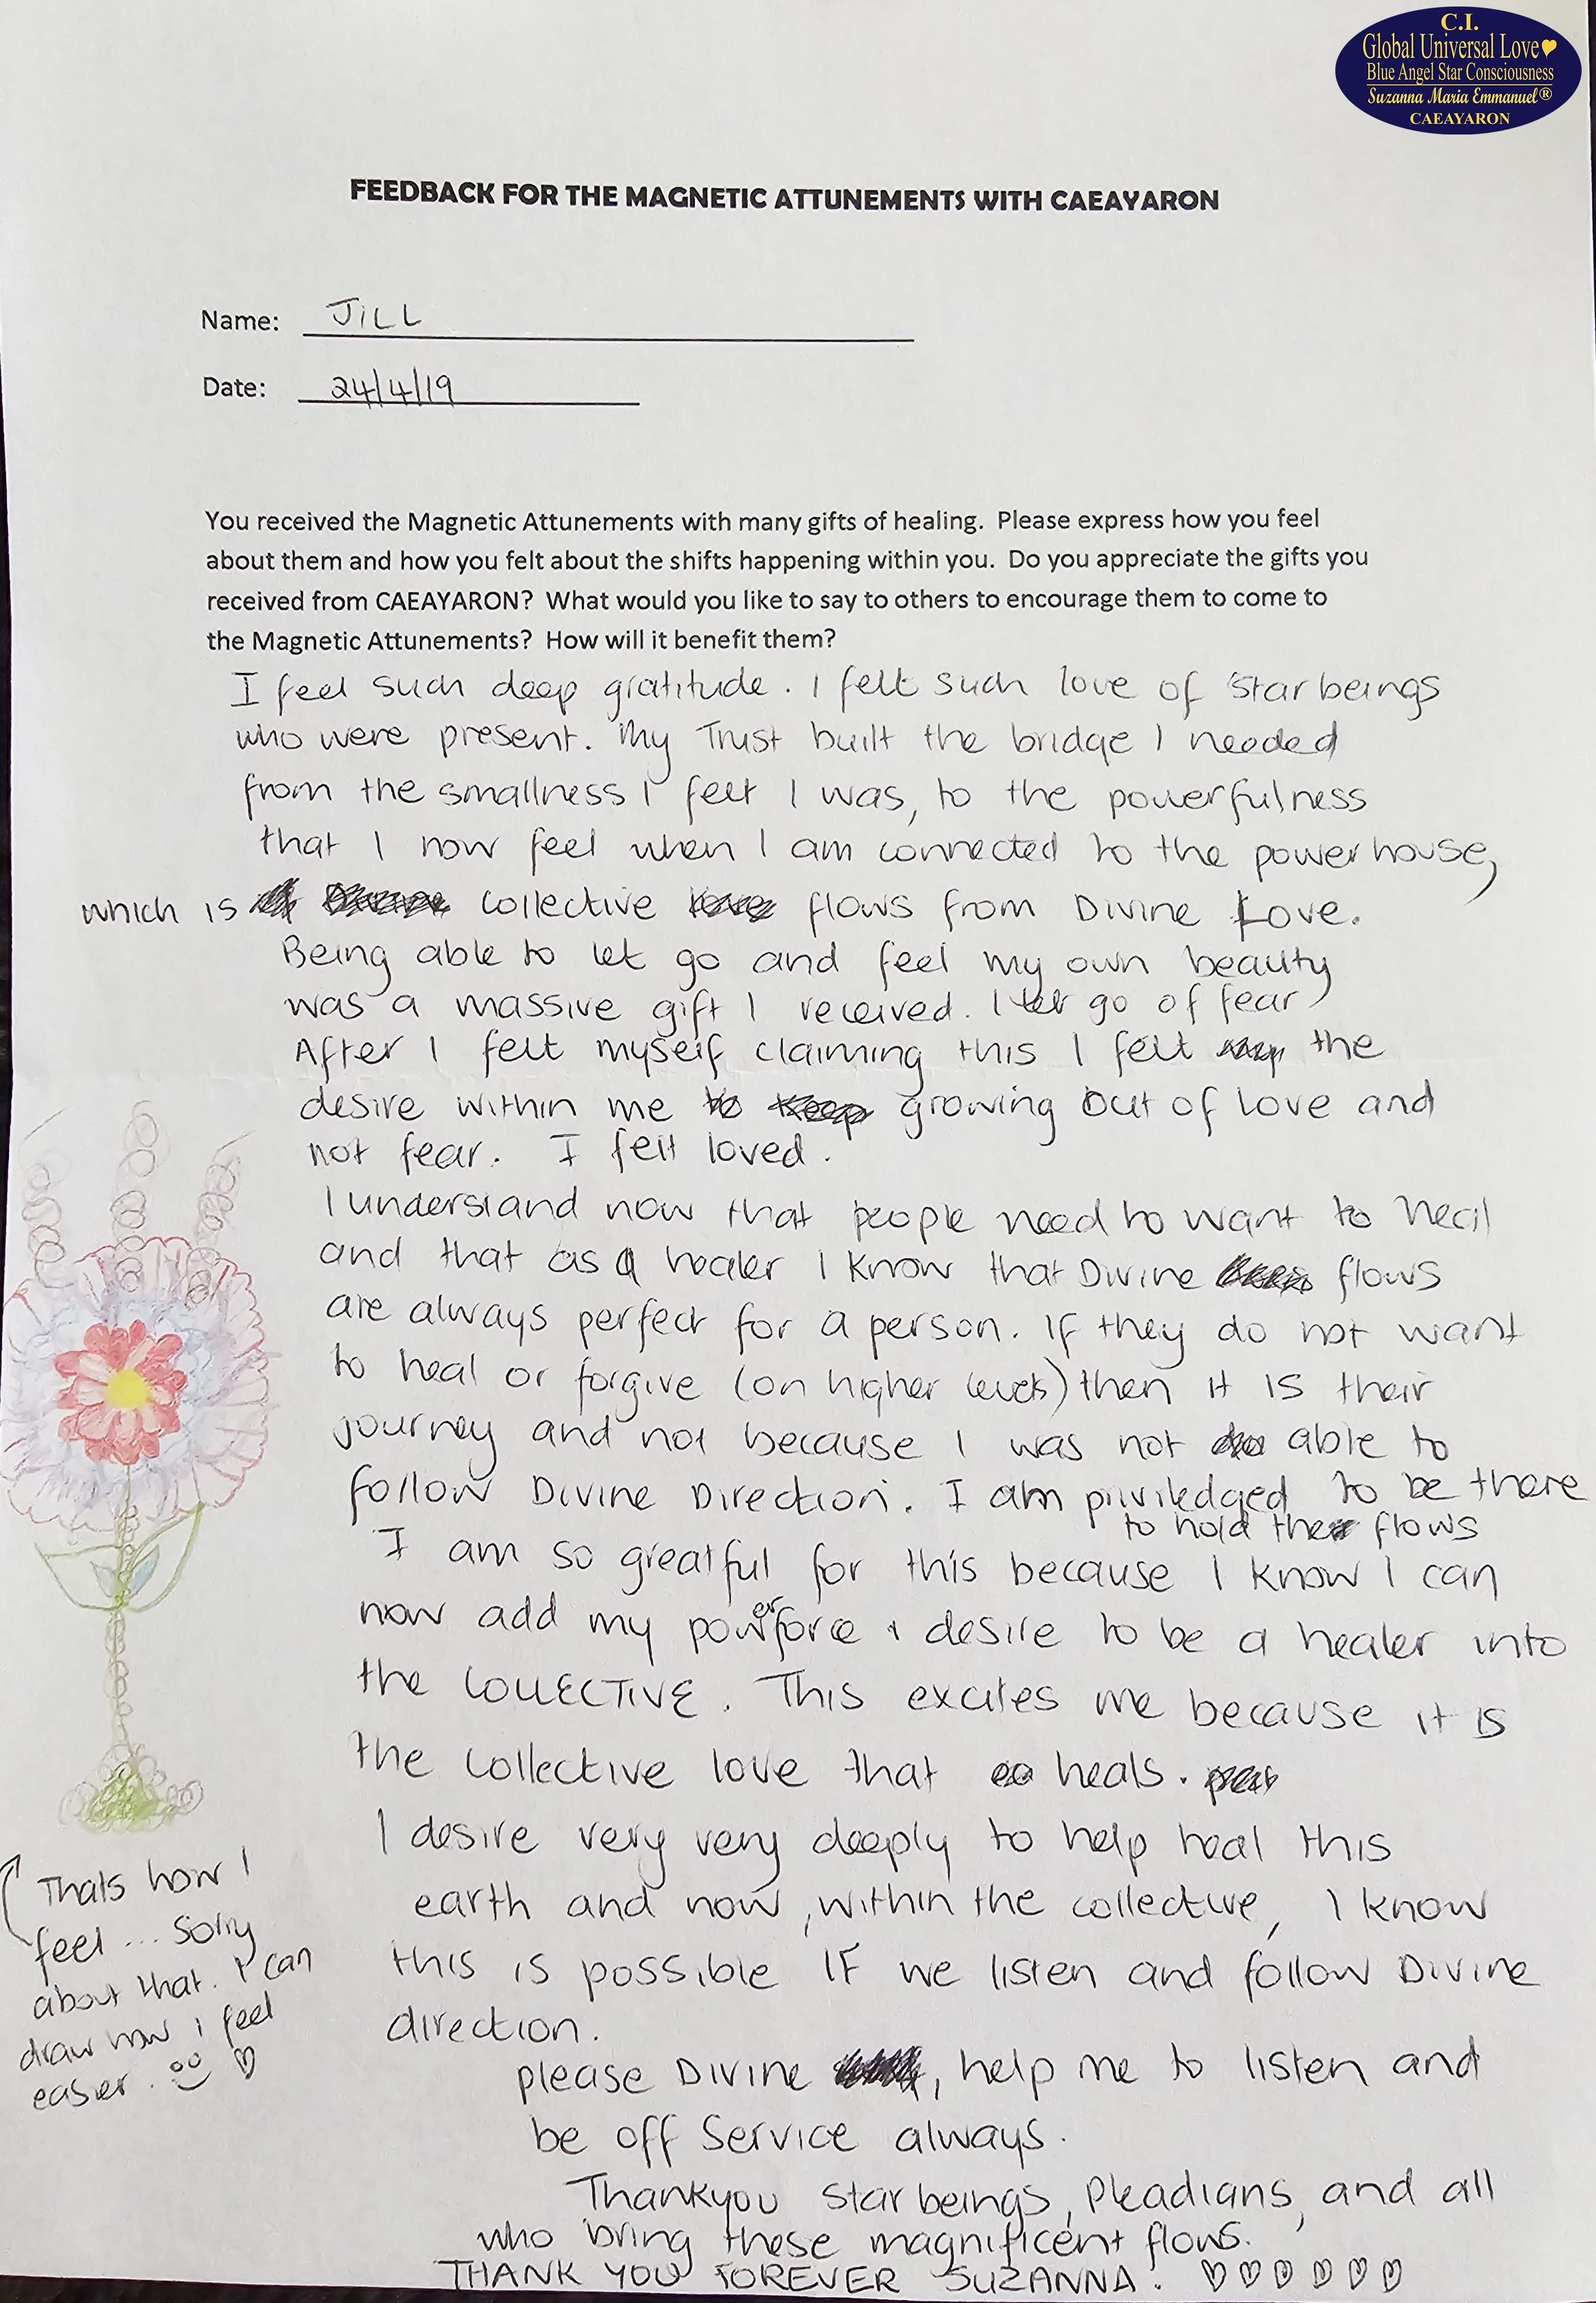 C.I.
Global Universal Love
Blue Angel Star Consciousness
Suzanna Maria Emmanuel®
CAEAYARON
FEEDBACK FOR THE MAGNETIC ATTUNEMENTS WITH CAEAYARON
Name: JiLL
Date: 24/4/19
You received the Magnetic Attunements with many gifts of healing. Please express how you feel
about them and how you felt about the shifts happening within you. Do you appreciate the gifts you
received from CAEAYARON? What would you like to say to others to encourage them to come to
the Magnetic Attunements? How will it benefit them?
I feel such deep gratitude. I felt such love of star beings
who were present. My Trust built the bridge I needed
from the smallness I felt I was, to the powerfulness
that I now feel when I am connected to the powerhouse,
which is collective flows from Divine Love.
Being able to let go and feel my own beauty
was a massive gift I received. I let go of fear
After I felt myself claiming this I felt the
desire within me growing out of love and
not fear. I felt loved.
I understand now that people need to want to heal
and that as a healer I know that Divine flows
are always perfect for a person. If they do not want
to heal or forgive (on higher levels) then it is their
journey and not because I was not able to
follow Divine Direction. I am priviledged to be there
to hold the flows
I am so greatful for this because I know I can
now add my powerforce & desire to be a healer into
the COLLECTIVE. This excites me because it is
the collective love that heals.
I desire very very deeply to help heal this
earth and now, within the collective, I know
this is possible IF we listen and follow Divine
direction.
please Divine, help me to listen and
be off Service always.
Thankyou star beings, Pleadians, and all
who bring these magnificent flows.
THANK YOU FOREVER SUZANNA!
Thats how I
feel... Sorry
about that. I can
draw how i feel
easier.